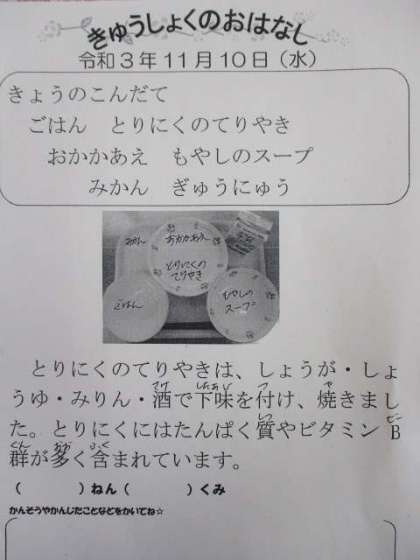 きゅうしょくのおはなし
令和3年11月10日(水)
きょうのこんだて
ごはん とりにくのてりやき
おかかあえ もやしのスープ
みかん ぎゅうにゅう
みかん
おかかあえ
とりにくの
てりやき
ごはん
もやしの
スープ
とりにくのてりやきは、しょうが・しょ
うゆ・みりん・酒で下味を付け、焼きまし
た。とりにくにはたんぱく質やビタミンB
群が多く含まれています。
( )ねん( )くみ
かんそうやかんじたことなどをかいてね☆